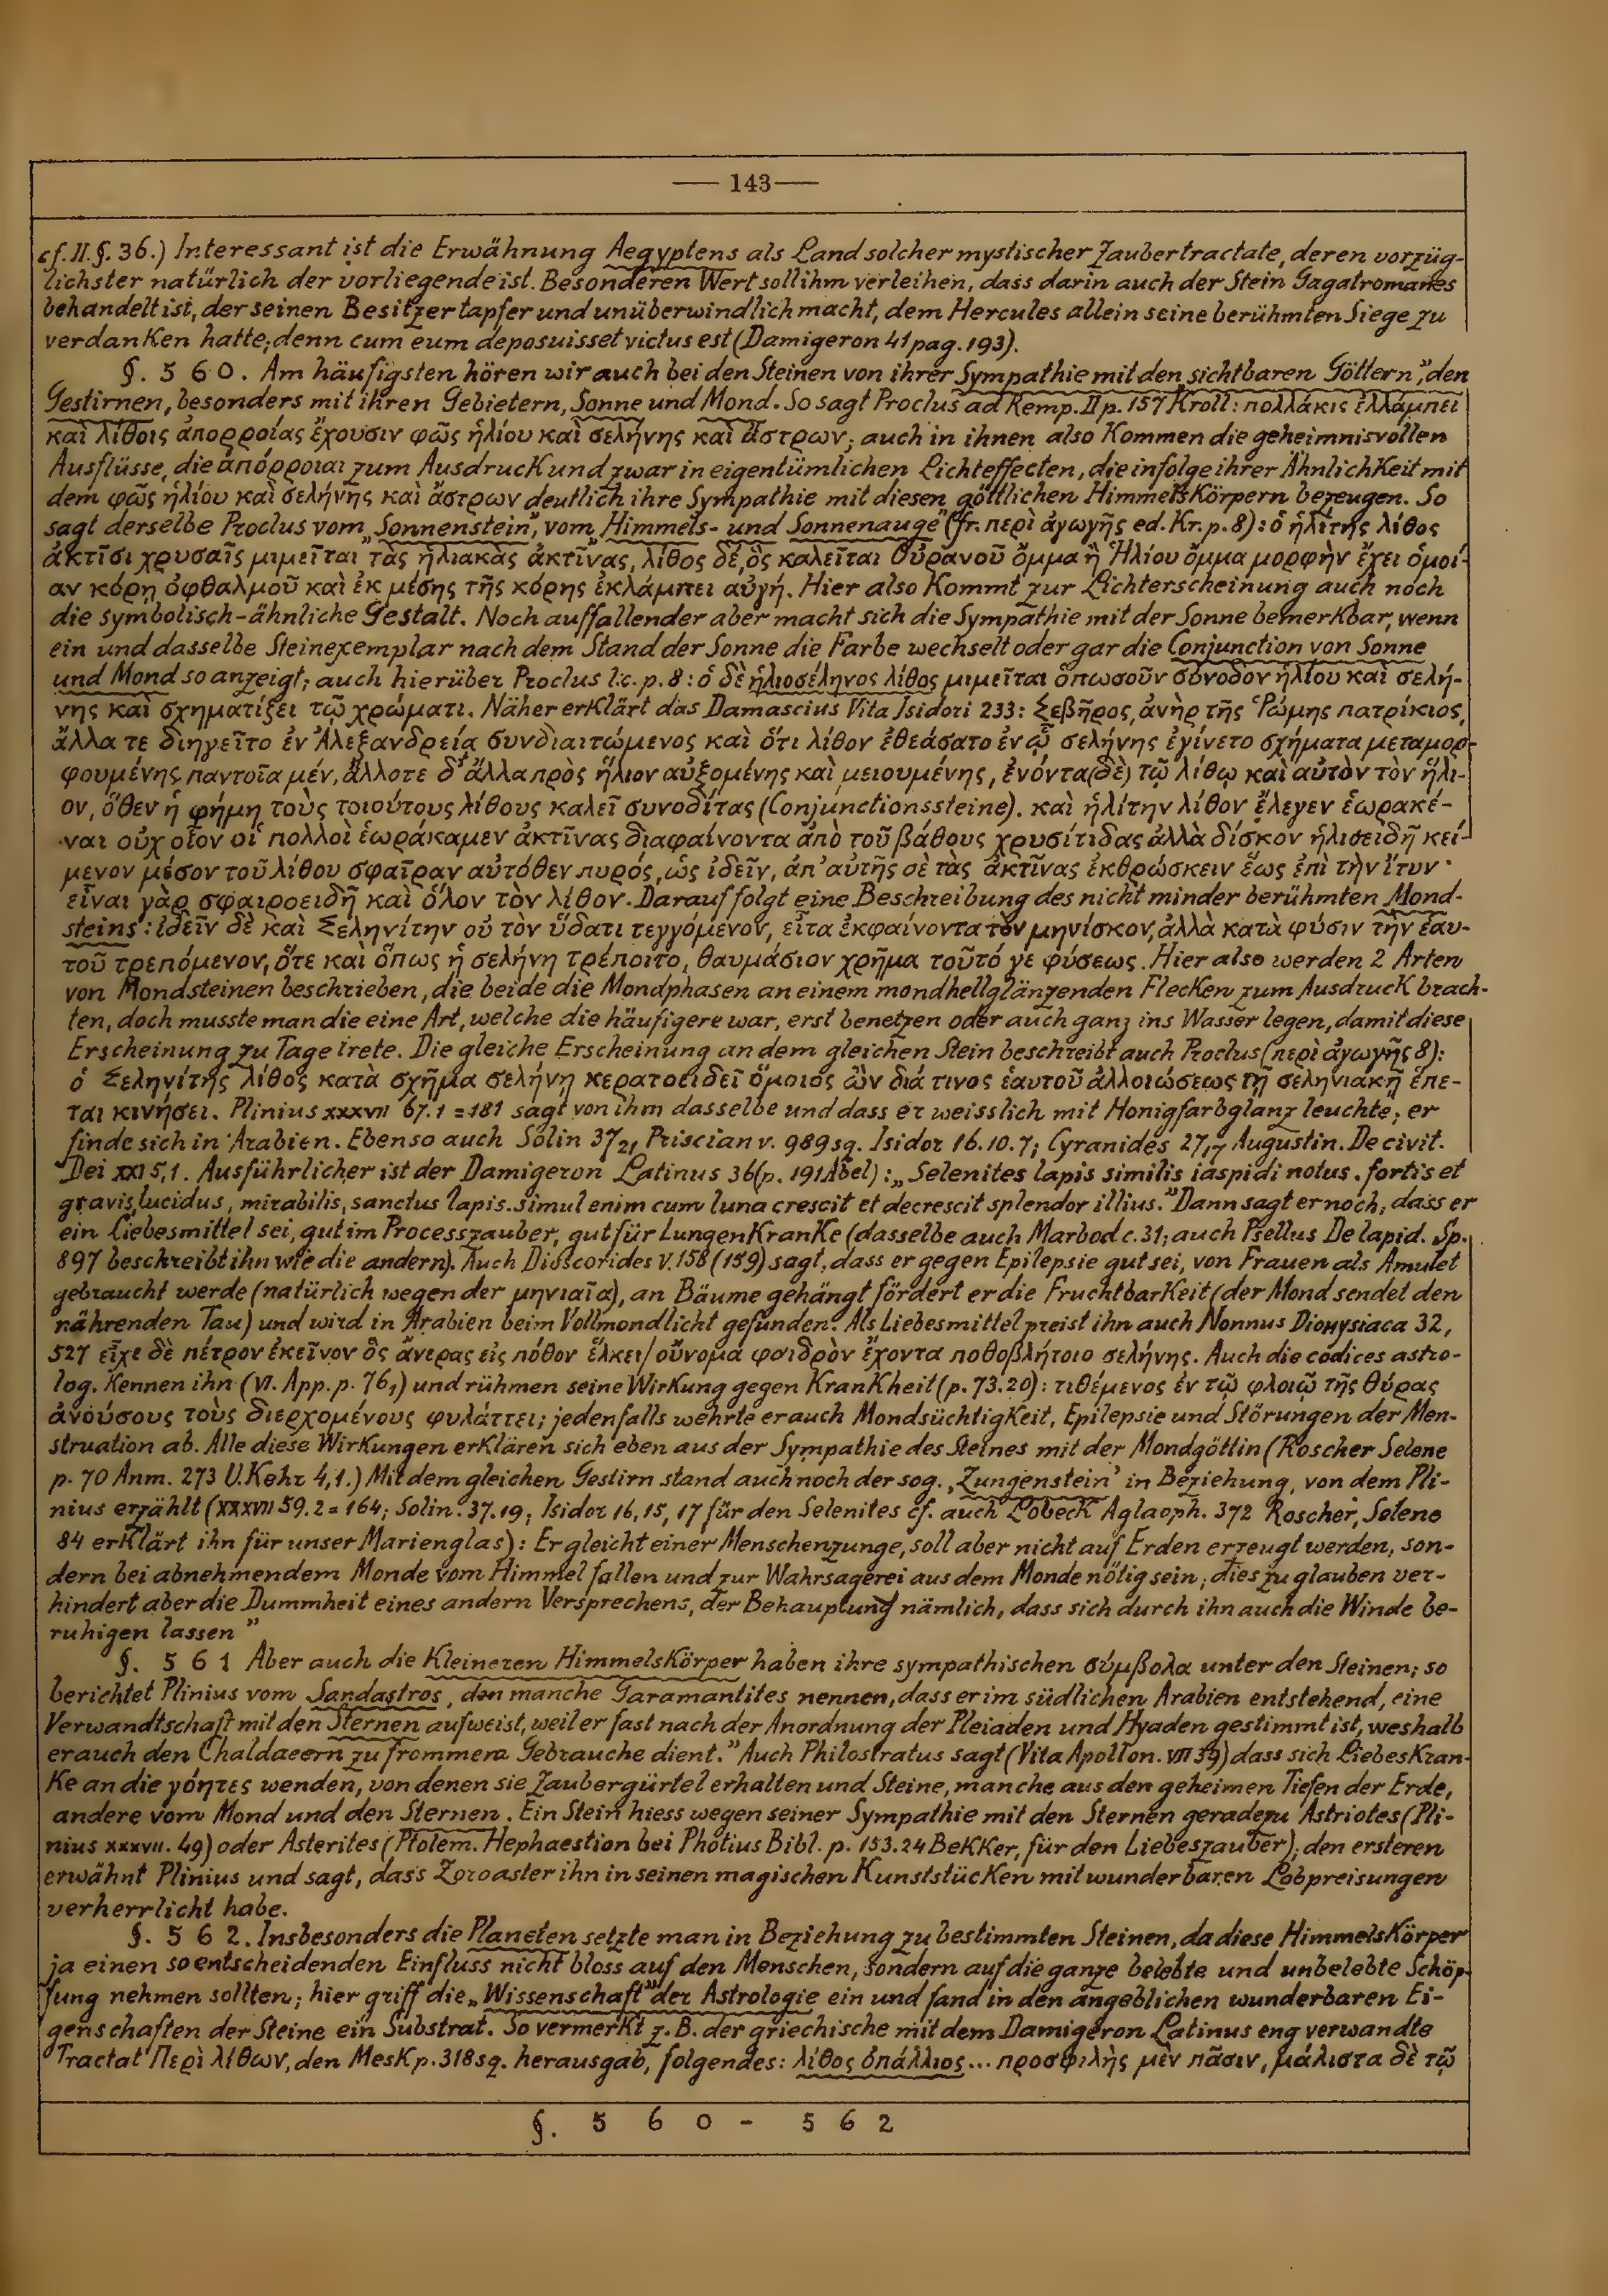 — 143 —
cf. II. §. 36.) Interessant ist die Erwähnung Aegyptens als Land solcher mystischer Zaubertractate, deren vorzüg-
lichster natürlich der vorliegende ist. Besonderen Wert soll ihm verleihen, dass darin auch der Stein Gagatromanes
behandelt ist, der seinen Besitzer tapfer und unüberwindlich macht, dem Hercules allein seine berühmten Siege zu
verdanken hatte; denn cum eum deposuisset victus est (Damigeron 41 pag. 193).
§. 560. Am häufigsten hören wir auch bei den Steinen von ihrer Sympathie mit den „sichtbaren Göttern", den
Gestirnen, besonders mit ihren Gebietern, Sonne und Mond. So sagt Proclus ad Remp. II p. 157 Kroll: πολλάκις ἐλλάμπει
καὶ λίθοις ἀπορροίας ἔχουσιν φῶς ἡλίου καὶ σελήνης καὶ ἄστρων; auch in ihnen also kommen die geheimnisvollen
Ausflüsse, die ἀπόρροιαι zum Ausdruck und zwar in eigentümlichen Lichteffecten, die infolge ihrer Ähnlichkeit mit
dem φῶς ἡλίου καὶ σελήνης καὶ ἄστρων deutlich ihre Sympathie mit diesen göttlichen Himmelskörpern bezeugen. So
sagt derselbe Proclus vom „Sonnenstein", vom „Himmels- und Sonnenauge" (fr. περὶ ἀγωγῆς ed. Kr. p. 8): ὁ ἡλίτης λίθος
ἀκτῖσι χρυσαῖς μιμεῖται τὰς ἡλιακὰς ἀκτῖνας, λίθος δέ, ὃς καλεῖται Οὐρανοῦ ὄμμα ἢ Ἡλίου ὄμμα μορφὴν ἔχει ὁμοί-
αν κόρῃ ὀφθαλμοῦ καὶ ἐκ μέσης τῆς κόρης ἐκλάμπει αὐγή. Hier also kommt zur Lichterscheinung auch noch
die symbolisch-ähnliche Gestalt. Noch auffallender aber macht sich die Sympathie mit der Sonne bemerkbar, wenn
ein und dasselbe Steinexemplar nach dem Stand der Sonne die Farbe wechselt oder gar die Conjunction von Sonne
und Mond so anzeigt; auch hierüber Proclus l. c. p. 8: ὁ δὲ ἡλιοσέληνος λίθος μιμεῖται ὁπωσοῦν σύνοδον ἡλίου καὶ σελή-
νης καὶ σχηματίζει τῷ χρώματι. Näher erklärt das Damascius Vita Isidori 233: Σεβῆρος, ἀνὴρ τῆς Ῥώμης πατρίκιος,
ἄλλα τε διηγεῖτο ἐν Ἀλεξανδρείᾳ συνδιαιτώμενος καὶ ὅτι λίθον ἐθεάσατο ἐν ᾧ σελήνης ἐγίνετο σχήματα μεταμορ-
φουμένης παντοῖα μέν, ἄλλοτε δ' ἄλλα πρὸς ἥλιον αὐξομένης καὶ μειουμένης, ἐνόντα (δὲ) τῷ λίθῳ καὶ αὐτὸν τὸν ἥλι-
ον, ὅθεν ἡ φήμη τοὺς τοιούτους λίθους καλεῖ συνοδίτας (Conjunctionssteine). καὶ ἡλίτην λίθον ἔλεγεν ἑωρακέ-
ναι οὐχ οἷον οἱ πολλοὶ ἑωράκαμεν ἀκτῖνας διαφαίνοντα ἀπὸ τοῦ βάθους χρυσίτιδας ἀλλὰ δίσκον ἡλιοειδῆ κεί-
μενον μέσον τοῦ λίθου σφαῖραν αὐτόθεν πυρός, ὡς ἰδεῖν, ἀπ' αὐτῆς σὲ τὰς ἀκτῖνας ἐκθρώσκειν ἕως ἐπὶ τὴν ἴτυν·
εἶναι γὰρ σφαιροειδῆ καὶ ὅλον τὸν λίθον. Darauf folgt eine Beschreibung des nicht minder berühmten Mond-
steins: ἰδεῖν δὲ καὶ Σεληνίτην οὐ τὸν ὕδατι τεγγόμενον, εἶτα ἐκφαίνοντα τὸν μηνίσκον, ἀλλὰ κατὰ φύσιν τὴν ἑαυ-
τοῦ τρεπόμενον, ὅτε καὶ ὅπως ἡ σελήνη τρέποιτο, θαυμάσιον χρῆμα τοῦτό γε φύσεως. Hier also werden 2 Arten
von Mondsteinen beschrieben, die beide die Mondphasen an einem mondhellglänzenden Flecken zum Ausdruck brach-
ten, doch musste man die eine Art, welche die häufigere war, erst benetzen oder auch ganz ins Wasser legen, damit diese
Erscheinung zu Tage trete. Die gleiche Erscheinung an dem gleichen Stein beschreibt auch Proclus (περὶ ἀγωγῆς 8):
ὁ Σεληνίτης λίθος κατὰ σχῆμα σελήνῃ κερατοειδεῖ ὅμοιος ὢν διά τινος ἑαυτοῦ ἀλλοιώσεως τῇ σεληνιακῇ ἕπε-
ται κινήσει. Plinius XXXVII 67.1 = 181 sagt von ihm dasselbe und dass er weisslich mit Honigfarbglanz leuchte; er
finde sich in Arabien. Ebenso auch Solin 37,21, Priscian v. 989 sq. Isidor 16.10.7; Cyranides 27,17 Augustin. De civit.
Dei XXI 5,1. Ausführlicher ist der Damigeron Latinus 36 (p. 191 Abel): „Selenites lapis similis iaspidi notus. fortis et
gravis, lucidus, mirabilis, sanctus lapis. simul enim cum luna crescit et decrescit splendor illius." Dann sagt er noch, dass er
ein Liebesmittel sei, gut im Processzauber, gut für Lungenkranke (dasselbe auch Marbod c. 31; auch Psellus De lapid. Sp.
897 beschreibt ihn wie die andern). Auch Dioscorides V. 158 (159) sagt, dass er gegen Epilepsie gut sei, von Frauen als Amulet
gebraucht werde (natürlich wegen der μηνιαῖα), an Bäume gehängt fördert er die Fruchtbarkeit (der Mond sendet den
nährenden Tau) und wird in Arabien beim Vollmondlicht gefunden. Als Liebesmittel preist ihn auch Nonnus Dionysiaca 32,
527 εἶχε δὲ πέτρον ἐκεῖνον ὃς ἄνερας εἰς πόθον ἕλκει / οὔνομα φαιδρὸν ἔχοντα ποθοβλήτοιο σελήνης. Auch die codices astro-
log. kennen ihn (VI. App. p. 76,1) und rühmen seine Wirkung gegen Krankheit (p. 73.20): τιθέμενος ἐν τῷ φλοιῷ τῆς θύρας
ἀνούσους τοὺς διερχομένους φυλάττει; jedenfalls wehrte er auch Mondsüchtigkeit, Epilepsie und Störungen der Men-
struation ab. Alle diese Wirkungen erklären sich eben aus der Sympathie des Steines mit der Mondgöttin (Roscher Selene
p. 70 Anm. 273 U. Kehr 4,1.) Mit dem gleichen Gestirn stand auch noch der sog. ‚Zungenstein' in Beziehung, von dem Pli-
nius erzählt (XXXVII 59.2 = 164; Solin. 37.19; Isidor 16, 15, 17 für den Selenites cf. auch Lobeck Aglaoph. 372 Roscher, Selene
84 erklärt ihn für unser Marienglas): Er gleicht einer Menschenzunge, soll aber nicht auf Erden erzeugt werden, son-
dern bei abnehmendem Monde vom Himmel fallen und zur Wahrsagerei aus dem Monde nötig sein; dies zu glauben ver-
hindert aber die Dummheit eines andern Versprechens, der Behauptung nämlich, dass sich durch ihn auch die Winde be-
ruhigen lassen"
§. 561 Aber auch die kleineren Himmelskörper haben ihre sympathischen σύμβολα unter den Steinen; so
berichtet Plinius vom Sandastros, den manche Garamantites nennen, dass er im südlichen Arabien entstehend, eine
Verwandtschaft mit den Sternen aufweist, weil er fast nach der Anordnung der Pleiaden und Hyaden gestimmt ist, weshalb
er auch den Chaldaeern zu frommem Gebrauche dient." Auch Philostratus sagt (Vita Apollon. VII 39) dass sich Liebeskran-
ke an die γόητες wenden, von denen sie Zaubergürtel erhalten und Steine, manche aus den geheimen Tiefen der Erde,
andere vom Mond und den Sternen. Ein Stein hiess wegen seiner Sympathie mit den Sternen geradezu Astriotes (Pli-
nius XXXVII. 49) oder Asterites (Ptolem. Hephaestion bei Photius Bibl. p. 153.24 Bekker, für den Liebeszauber); den ersteren
erwähnt Plinius und sagt, dass Zoroaster ihn in seinen magischen Kunststücken mit wunderbaren Lobpreisungen
verherrlicht habe.
§. 562. Insbesonders die Planeten setzte man in Beziehung zu bestimmten Steinen, da diese Himmelskörper
ja einen so entscheidenden Einfluss nicht bloss auf den Menschen, sondern auf die ganze belebte und unbelebte Schöp-
fung nehmen sollten; hier griff die „Wissenschaft" der Astrologie ein und fand in den angeblichen wunderbaren Ei-
genschaften der Steine ein Substrat. So vermerkt z. B. der griechische mit dem Damigeron Latinus eng verwandte
Tractat Περὶ λίθων, den Mesk p. 318 sq. herausgab, folgendes: λίθος ὀπάλλιος... προσφιλὴς μὲν πᾶσιν, μάλιστα δὲ τῷ
§. 560 - 562